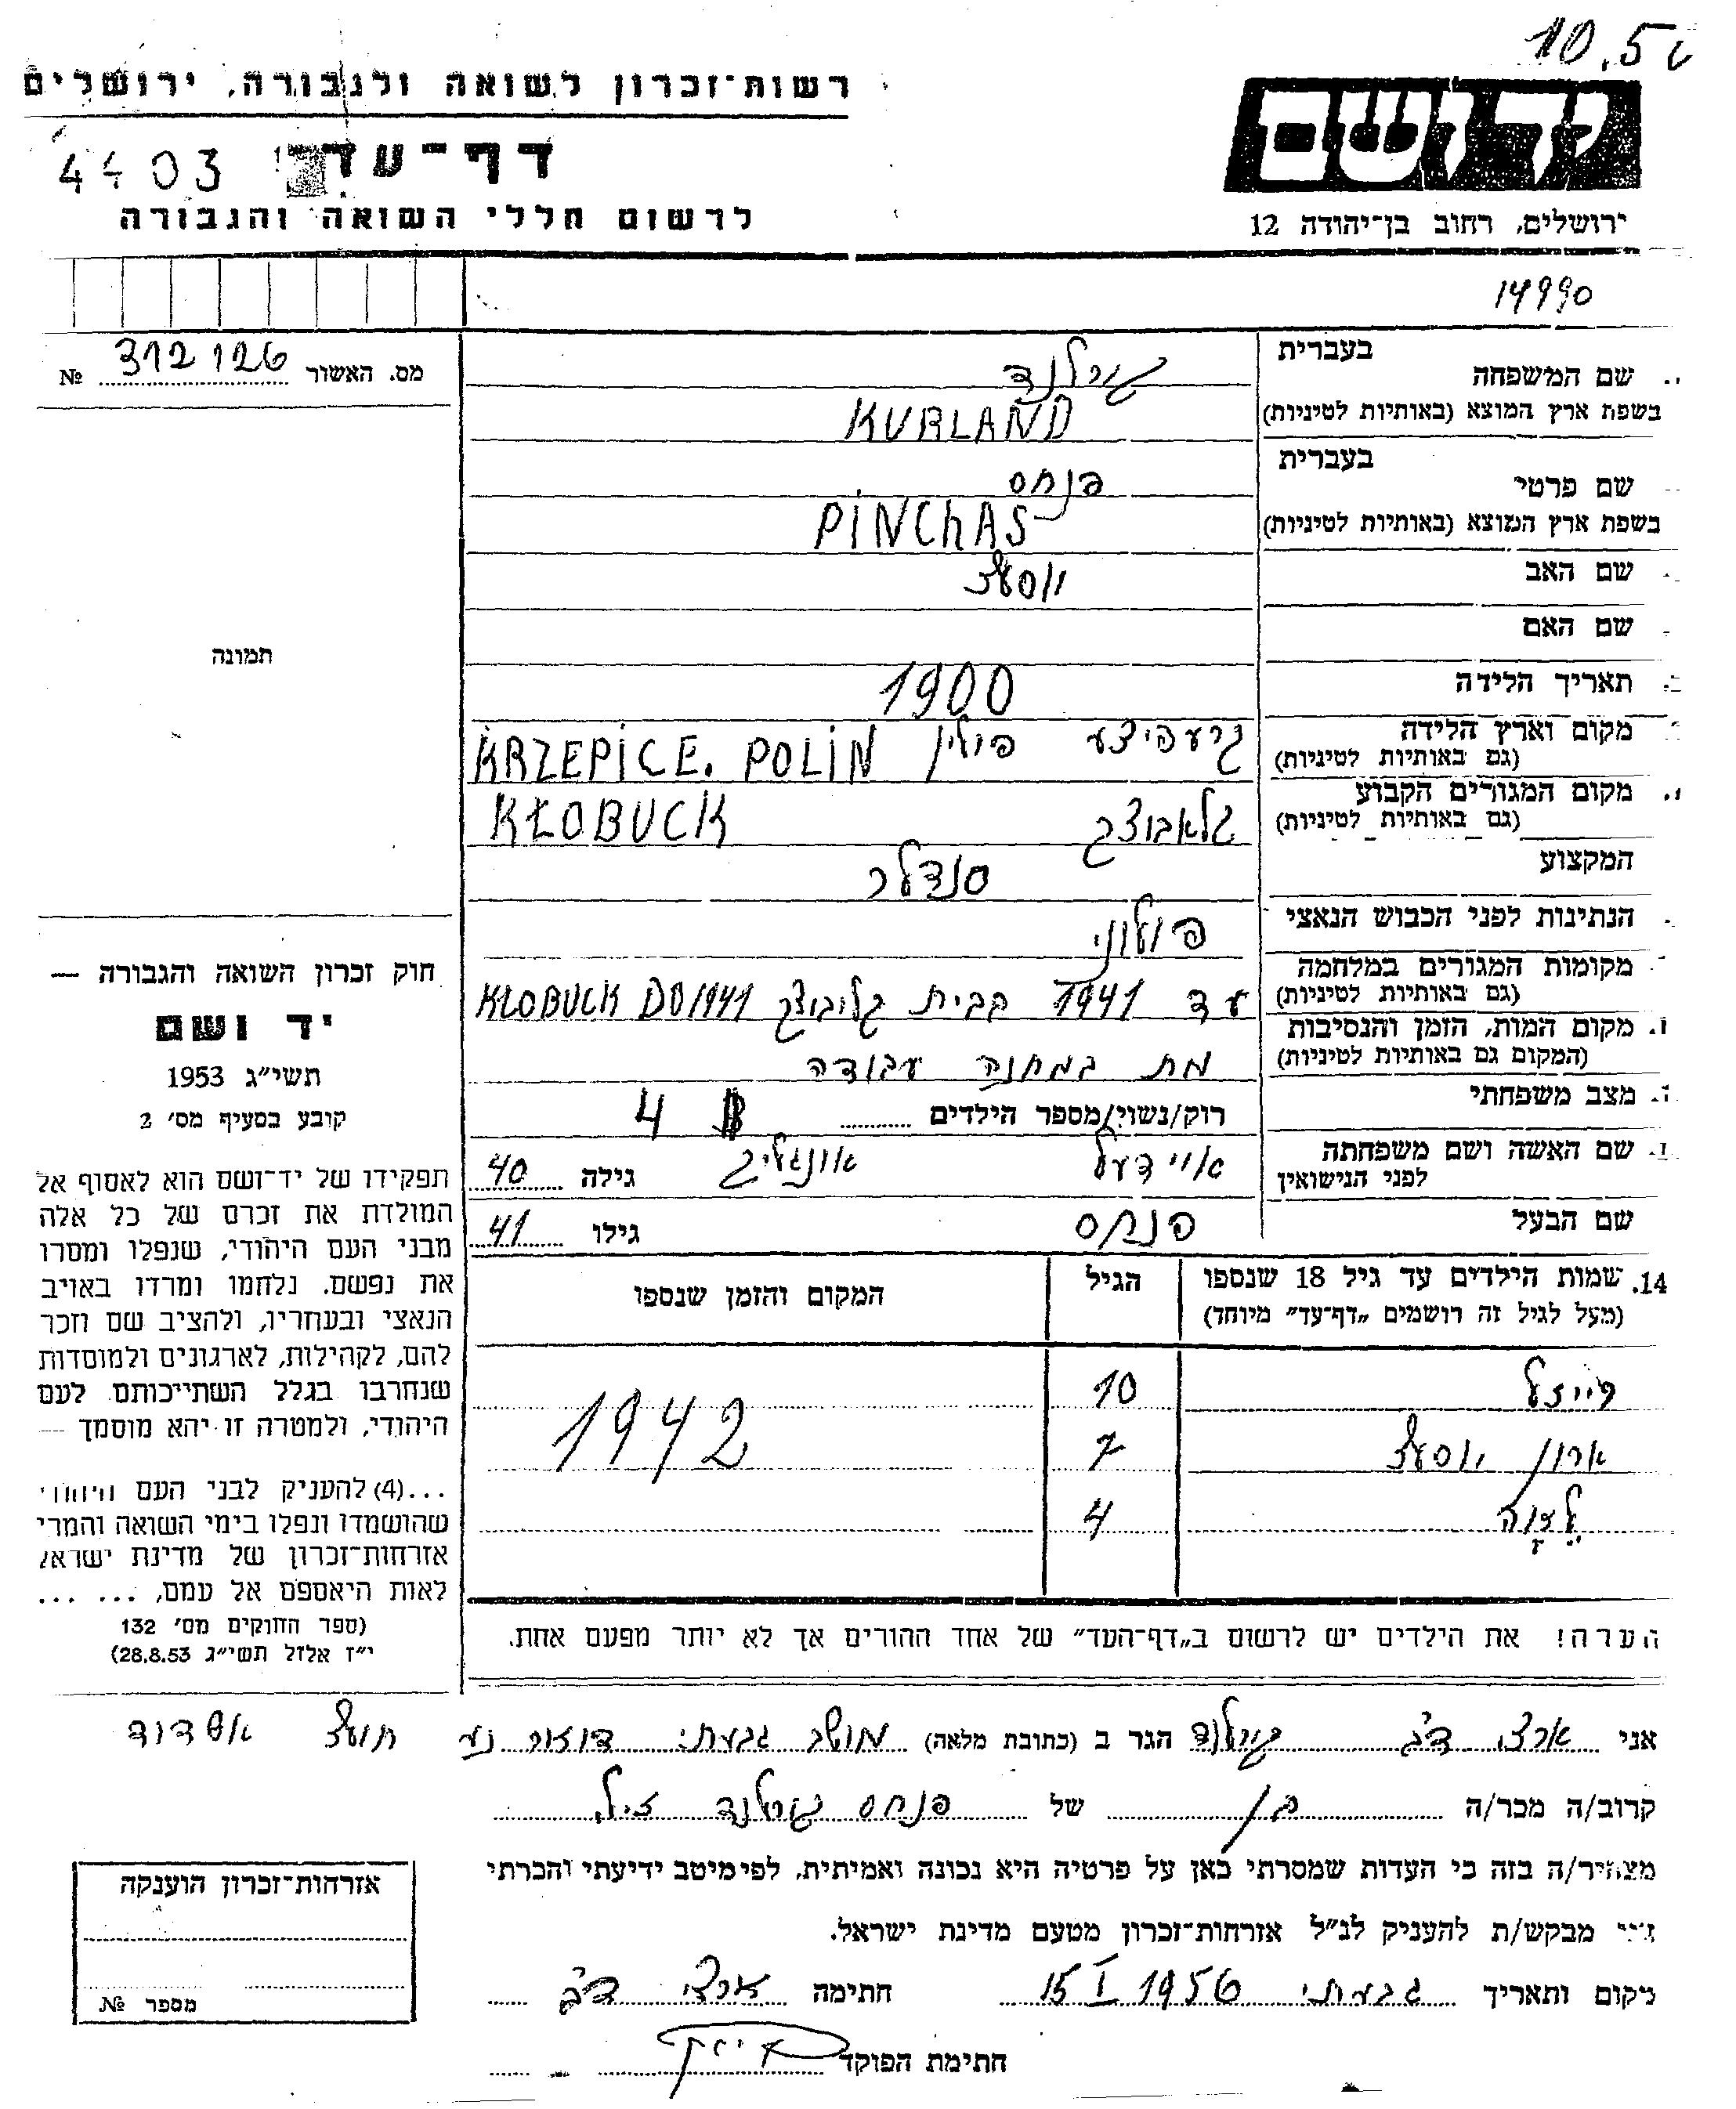 10.5
רשות־זכרון לשואה ולגבורה, ירושלים
ידושם
דף־עד
4403
לרשום חללי השואה והגבורה
ירושלים, רחוב בן־יהודה 12
14990
מס. האשור 312126 №
בעברית
שם המשפחה קורלנד
בשפת ארץ המוצא (באותיות לטיניות) KURLAND
בעברית
שם פרטי פנחס
בשפת ארץ המוצא (באותיות לטיניות) PINCHAS
שם האב יוסף
שם האם
תאריך הלידה 1900
מקום וארץ הלידה
(גם באותיות לטיניות) קרעפיצע פולין KRZEPICE. POLIN
מקום המגורים הקבוע
(גם באותיות לטיניות) קלאבוצק KŁOBUCK
המקצוע סנדלר
הנתינות לפני הכבוש הנאצי פולני
מקומות המגורים במלחמה
(גם באותיות לטיניות) עד 1941 בבית קליבוצק KŁOBUCK DO 1941
מקום המות, הזמן והנסיבות
(המקום גם באותיות לטיניות) מת במחנה עבודה
מצב משפחתי רוק/נשוי/מספר הילדים 4
שם האשה ושם משפחתה
לפני הנישואין איידעל אונגליק גילה 40
שם הבעל פנחס גילו 41
14. שמות הילדים עד גיל 18 שנספו
(מעל לגיל זה רושמים „דף־עד” מיוחד)
הגיל
המקום והזמן שנספו
פייזל 10
ארון יוסף 7 1942
4
הערה! את הילדים יש לרשום ב„דף־העד” של אחד ההורים אך לא יותר מפעם אחת.
תמונה
חוק זכרון השואה והגבורה —
יד ושם
תשי״ג 1953
קובע בסעיף מס׳ 2
תפקידו של יד־ושם הוא לאסוף אל
המולדת את זכרם של כל אלה
מבני העם היהודי, שנפלו ומסרו
את נפשם, נלחמו ומרדו באויב
הנאצי ובעוזריו, ולהציב שם וזכר
להם, לקהילות, לארגונים ולמוסדות
שנחרבו בגלל השתייכותם לעם
היהודי, ולמטרה זו יהא מוסמך —
...(4) להעניק לבני העם היהודי
שהושמדו ונפלו בימי השואה והמרי
אזרחות־זכרון של מדינת ישראל
לאות היאספם אל עמם, ... ...
(ספר החוקים מס׳ 132
י״ז אלול תשי״ג 28.8.53)
אני ארצי דב קורלנד הגר ב (כתובת מלאה) מושב גבעתי דואר נע חוף אשדוד
קרוב/ה מכר/ה בן של פנחס קורלנד ז״ל
מצהיר/ה בזה כי העדות שמסרתי כאן על פרטיה היא נכונה ואמיתית, לפי מיטב ידיעתי והכרתי
אני מבקש/ת להעניק לנ״ל אזרחות־זכרון מטעם מדינת ישראל.
מקום ותאריך גבעתי 15 I 1956 חתימה ארצי דב
חתימת הפוקד
אזרחות־זכרון הוענקה
מספר №